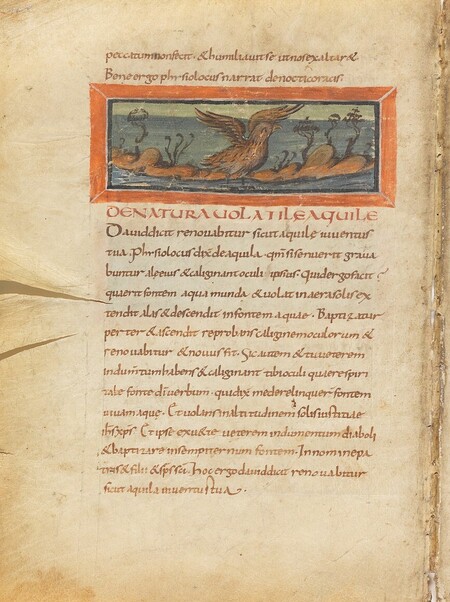 peccatum non fecit · & humiliavit se ut nos exaltar&
Bene ergo phisiolocus narrat de nocticoracis
DE NATURA VOLATILE AQUILE
David dicit renovabitur sicut aquile iuventus
tua · Phisiolocus dix̄ de aquila · qm̄ si senuerit grava
buntur ale eius & caliginant oculi ipsius · Quid ergo facit ?
quaerit fontem aqua munda & volat in aera solis ex
tendit alas & descendit in fontem aquae · Baptizatur
per ter & ascendit reprobans caliginem oculorum &
renovabitur & novus fit · Sic autem & tu veterem
indumentum habens & caliginant tibi oculi quaere spiri
tale fonte dī verbum · qui dix̄ me derelinquer̄ fontem
vivam aque · Et volans in altitudinem solis iustitiae
ih̄s xp̄s · Et ipse exuere veterem indumentum diaboli
& baptizare in sempiternum fontem · In nomine pa
tris & filii & sp̄s sc̄i · hoc ergo david dicit renovabitur
sicut aquila iuventus tua ·